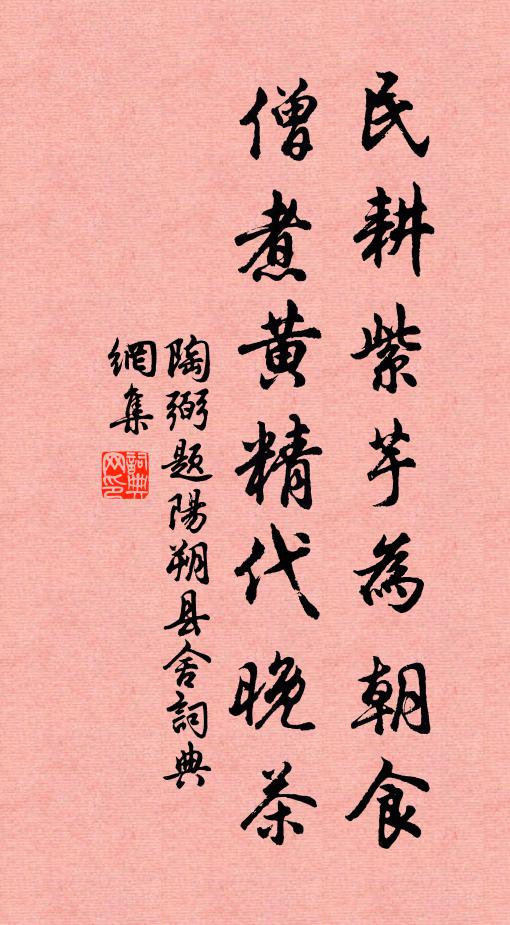 民耕紫芋為朝食
僧煮黄精代晚茶
陶弼題陽朔县舍詞典
網集
詞典网印